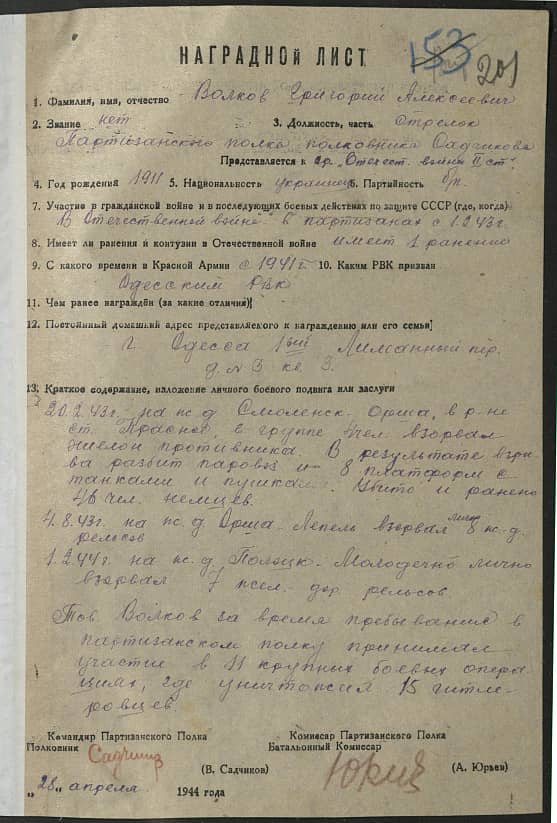 153
201
НАГРАДНОЙ ЛИСТ
1. Фамилия, имя, отчество Волков Григорий Алексеевич
2. Звание нет 3. Должность, часть Стрелок
Партизанского полка полковника Садчикова
Представляется к ор. „Отечест. войны II ст."
4. Год рождения 1911 5. Национальность украинец 6. Партийность бп.
7. Участие в гражданской войне и в последующих боевых действах по защите СССР (где, когда)
В Отечественной войне в партизанах с 1.2.43г.
8. Имеет ли ранения и контузии в Отечественной войне имеет 1 ранение
9. С какого времени в Красной Армии с 1941г. 10. Каким РВК призван
Одесским РВК
11. Чем ранее награждён (за какие отличия)
12. Постоянный домашний адрес представляемого к награждению или его семьи
г. Одесса 1ый Лиманный пер.
д. № 3 кв. 3.
13. Краткое содержание, изложение личного боевого подвига или заслуги
20.2.43г. на ж.д. Смоленск-Орша, в р-не
ст. Красное, в группе 4 чел. взорвал
эшелон противника. В результате взры-
ва разбит паровоз и 8 платформ с
танками и пушками. Убито и ранено
46 чел. немцев.
4.8.43г. на ж.д. Орша-Лепель взорвал лично 8 ж.д.
рельсов
1.2.44г. на ж.д. Полоцк-Молодечно лично
взорвал 7 жел. дор. рельсов.
Тов. Волков за время пребывания в
партизанском полку принимал
участие в 11 крупных боевых опера-
циях, где уничтожил 15 гитле-
ровцев.
Командир Партизанского Полка Комиссар Партизанского Полка
Полковник Садчиков Батальонный Комиссар Юрьев
(В. Садчиков) (А. Юрьев)
„28„ апреля 1944 года